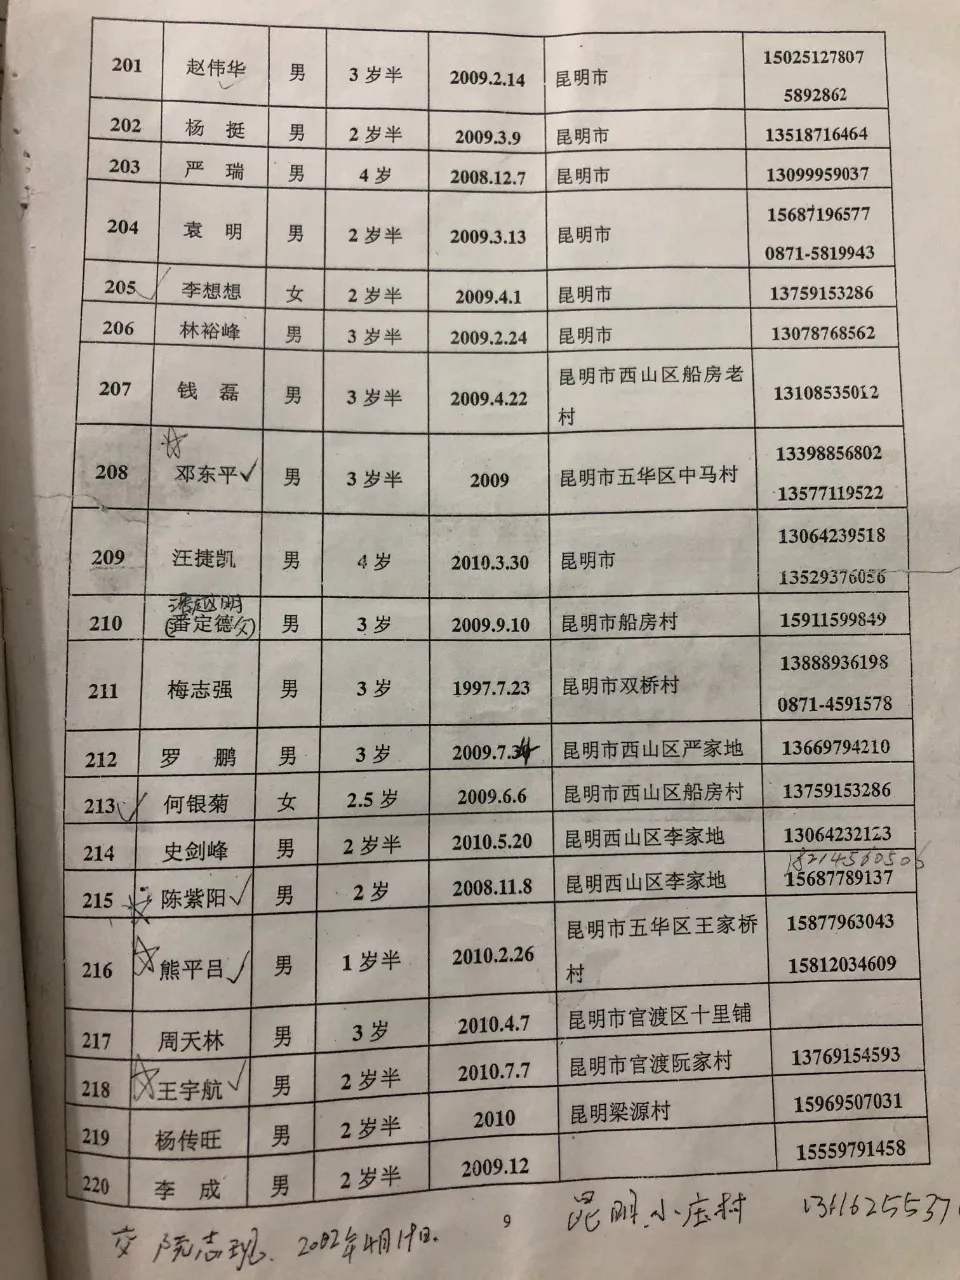 201 赵伟华 男 3 岁半 2009.2.14 昆明市 15025127807
5892862
202 杨 挺 男 2 岁半 2009.3.9 昆明市 13518716464
203 严 瑞 男 4 岁 2008.12.7 昆明市 13099959037
204 袁 明 男 2 岁半 2009.3.13 昆明市 15687196577
0871-5819943
205 李想想 女 2 岁半 2009.4.1 昆明市 13759153286
206 林裕峰 男 3 岁半 2009.2.24 昆明市 13078768562
207 钱 磊 男 3 岁半 2009.4.22 昆明市西山区船房老 13108535012
村
208 邓东平 男 3 岁半 2009 昆明市五华区中马村 13398856802
13577119522
209 汪捷凯 男 4 岁 2010.3.30 昆明市 13064239518
13529376056
210 (番定德女) 男 3 岁 2009.9.10 昆明市船房村 15911599849
211 梅志强 男 3 岁 1997.7.23 昆明市双桥村 13888936198
0871-4591578
212 罗 鹏 男 3 岁 2009.7. 昆明市西山区严家地 13669794210
213 何银菊 女 2.5 岁 2009.6.6 昆明市西山区船房村 13759153286
214 史剑峰 男 2 岁半 2010.5.20 昆明西山区李家地 13064232123
18214560506
215 陈紫阳 男 2 岁 2008.11.8 昆明西山区李家地 15687789137
216 熊平吕 男 1 岁半 2010.2.26 昆明市五华区王家桥 15877963043
村 15812034609
217 周天林 男 3 岁 2010.4.7 昆明市官渡区十里铺
218 王宇航 男 2 岁半 2010.7.7 昆明市官渡阮家村 13769154593
219 杨传旺 男 2 岁半 2010 昆明梁源村 15969507031
220 李 成 男 2 岁半 2009.12 15559791458
9
昆明小庄村
2002年4月19日.